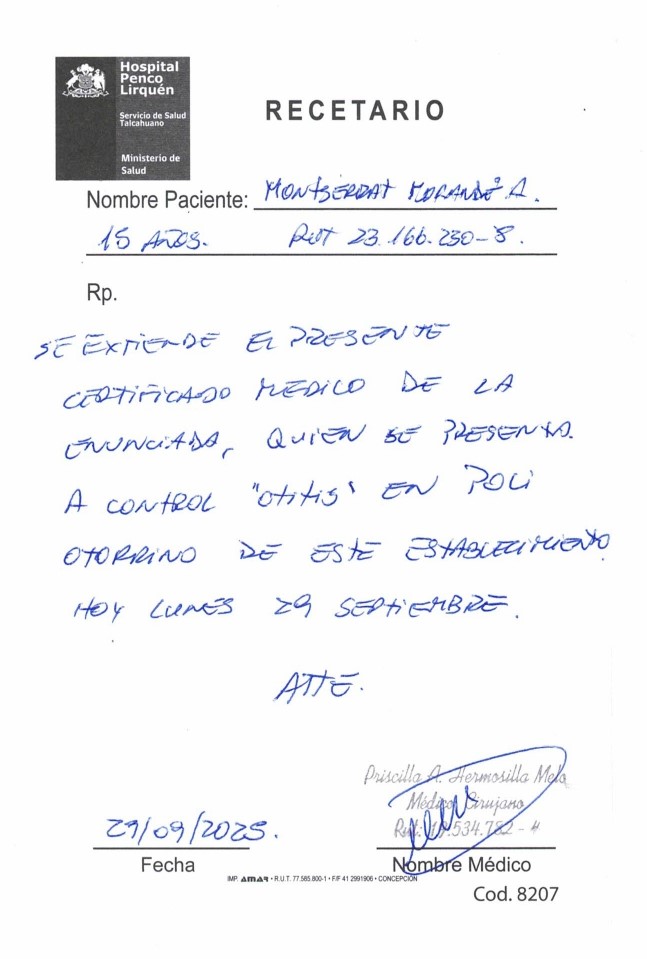 Hospital
Penco
Lirquén
Servicio de Salud
Talcahuano
Ministerio de
Salud
RECETARIO
Nombre Paciente: MONTSERRAT MORANDÉ A.
15 AÑOS. RUT 23.166.230-8.
Rp.
SE EXTIENDE EL PRESENTE
CERTIFICADO MEDICO DE LA
ENUNCIADA, QUIEN SE PRESENTA
A CONTROL "OTITIS" EN POLI
OTORRINO DE ESTE ESTABLECIMIENTO
HOY LUNES 29 SEPTIEMBRE.
ATTE.
Priscilla A. Hermosilla Melo
Médico Cirujano
29/09/2025.
Fecha
Nombre Médico
IMP. AMAR • R.U.T. 77.565.800-1 • F/F 41 2991906 • CONCEPCIÓN
Cod. 8207